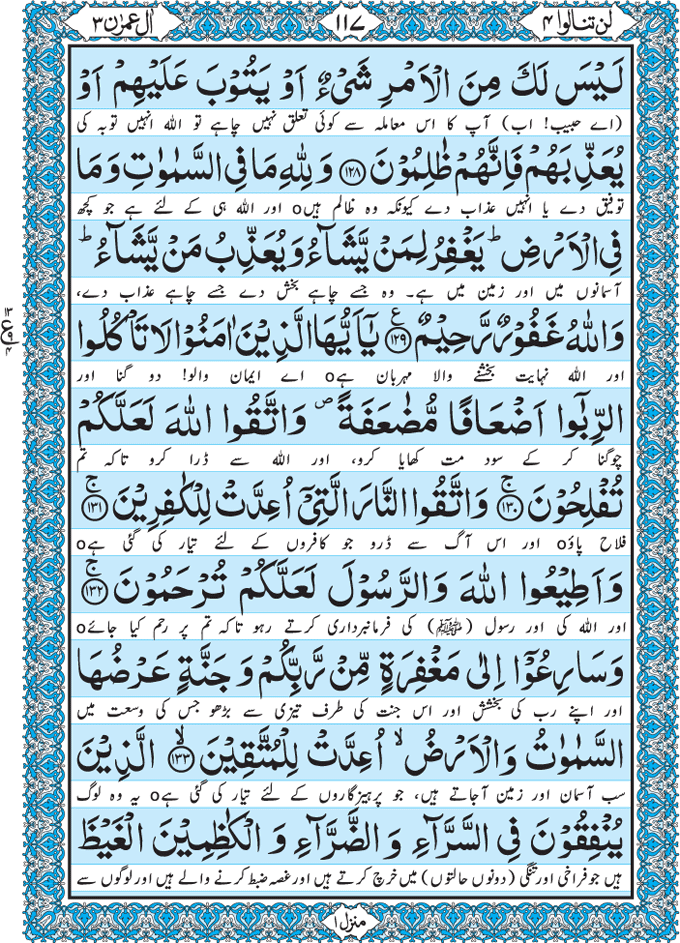 اٰل عمرٰن ۳ ۱۱۷ لن تنالوا ۴
لَيْسَ لَكَ مِنَ الْاَمْرِ شَيْءٌ اَوْ يَتُوْبَ عَلَيْهِمْ اَوْ
(اے حبیب! اب) آپ کا اس معاملہ سے کوئی تعلق نہیں چاہے تو اللہ انہیں توبہ کی
يُعَذِّبَهُمْ فَاِنَّهُمْ ظٰلِمُوْنَ ﴿۱۲۸﴾ وَلِلّٰهِ مَا فِي السَّمٰوٰتِ وَمَا
توفیق دے یا انہیں عذاب دے کیونکہ وہ ظالم ہیںo اور اللہ ہی کے لئے ہے جو کچھ
فِي الْاَرْضِ ؕ يَغْفِرُ لِمَنْ يَّشَآءُ وَيُعَذِّبُ مَنْ يَّشَآءُ ؕ
آسمانوں میں اور زمین میں ہے۔ وہ جسے چاہے بخش دے جسے چاہے عذاب دے،
وَاللّٰهُ غَفُوْرٌ رَّحِيْمٌ ﴿۱۲۹﴾ ع يٰۤاَيُّهَا الَّذِيْنَ اٰمَنُوْا لَا تَاْكُلُوا
اور اللہ نہایت بخشنے والا مہربان ہےo اے ایمان والو! دو گنا اور
الرِّبٰٓوا اَضْعَافًا مُّضٰعَفَةً ۪ وَاتَّقُوا اللّٰهَ لَعَلَّكُمْ
چوگنا کر کے سود مت کھایا کرو، اور اللہ سے ڈرا کرو تاکہ تم
تُفْلِحُوْنَ ﴿۱۳۰﴾ ۚ وَاتَّقُوا النَّارَ الَّتِيْۤ اُعِدَّتْ لِلْكٰفِرِيْنَ ﴿۱۳۱﴾ ۚ
فلاح پاؤo اور اس آگ سے ڈرو جو کافروں کے لئے تیار کی گئی ہےo
وَاَطِيْعُوا اللّٰهَ وَالرَّسُوْلَ لَعَلَّكُمْ تُرْحَمُوْنَ ﴿۱۳۲﴾ ۚ
اور اللہ کی اور رسول (ﷺ) کی فرمانبرداری کرتے رہو تاکہ تم پر رحم کیا جائےo
وَسَارِعُوْۤا اِلٰى مَغْفِرَةٍ مِّنْ رَّبِّكُمْ وَجَنَّةٍ عَرْضُهَا
اور اپنے رب کی بخشش اور اس جنت کی طرف تیزی سے بڑھو جس کی وسعت میں
السَّمٰوٰتُ وَالْاَرْضُ ۙ اُعِدَّتْ لِلْمُتَّقِيْنَ ﴿۱۳۳﴾ ۙ الَّذِيْنَ
سب آسمان اور زمین آجاتے ہیں، جو پرہیزگاروں کے لئے تیار کی گئی ہےo یہ وہ لوگ
يُنْفِقُوْنَ فِي السَّرَّآءِ وَالضَّرَّآءِ وَالْكٰظِمِيْنَ الْغَيْظَ
ہیں جو فراخی اور تنگی (دونوں حالتوں) میں خرچ کرتے ہیں اور غصہ ضبط کرنے والے ہیں اور لوگوں سے
منزل ۱